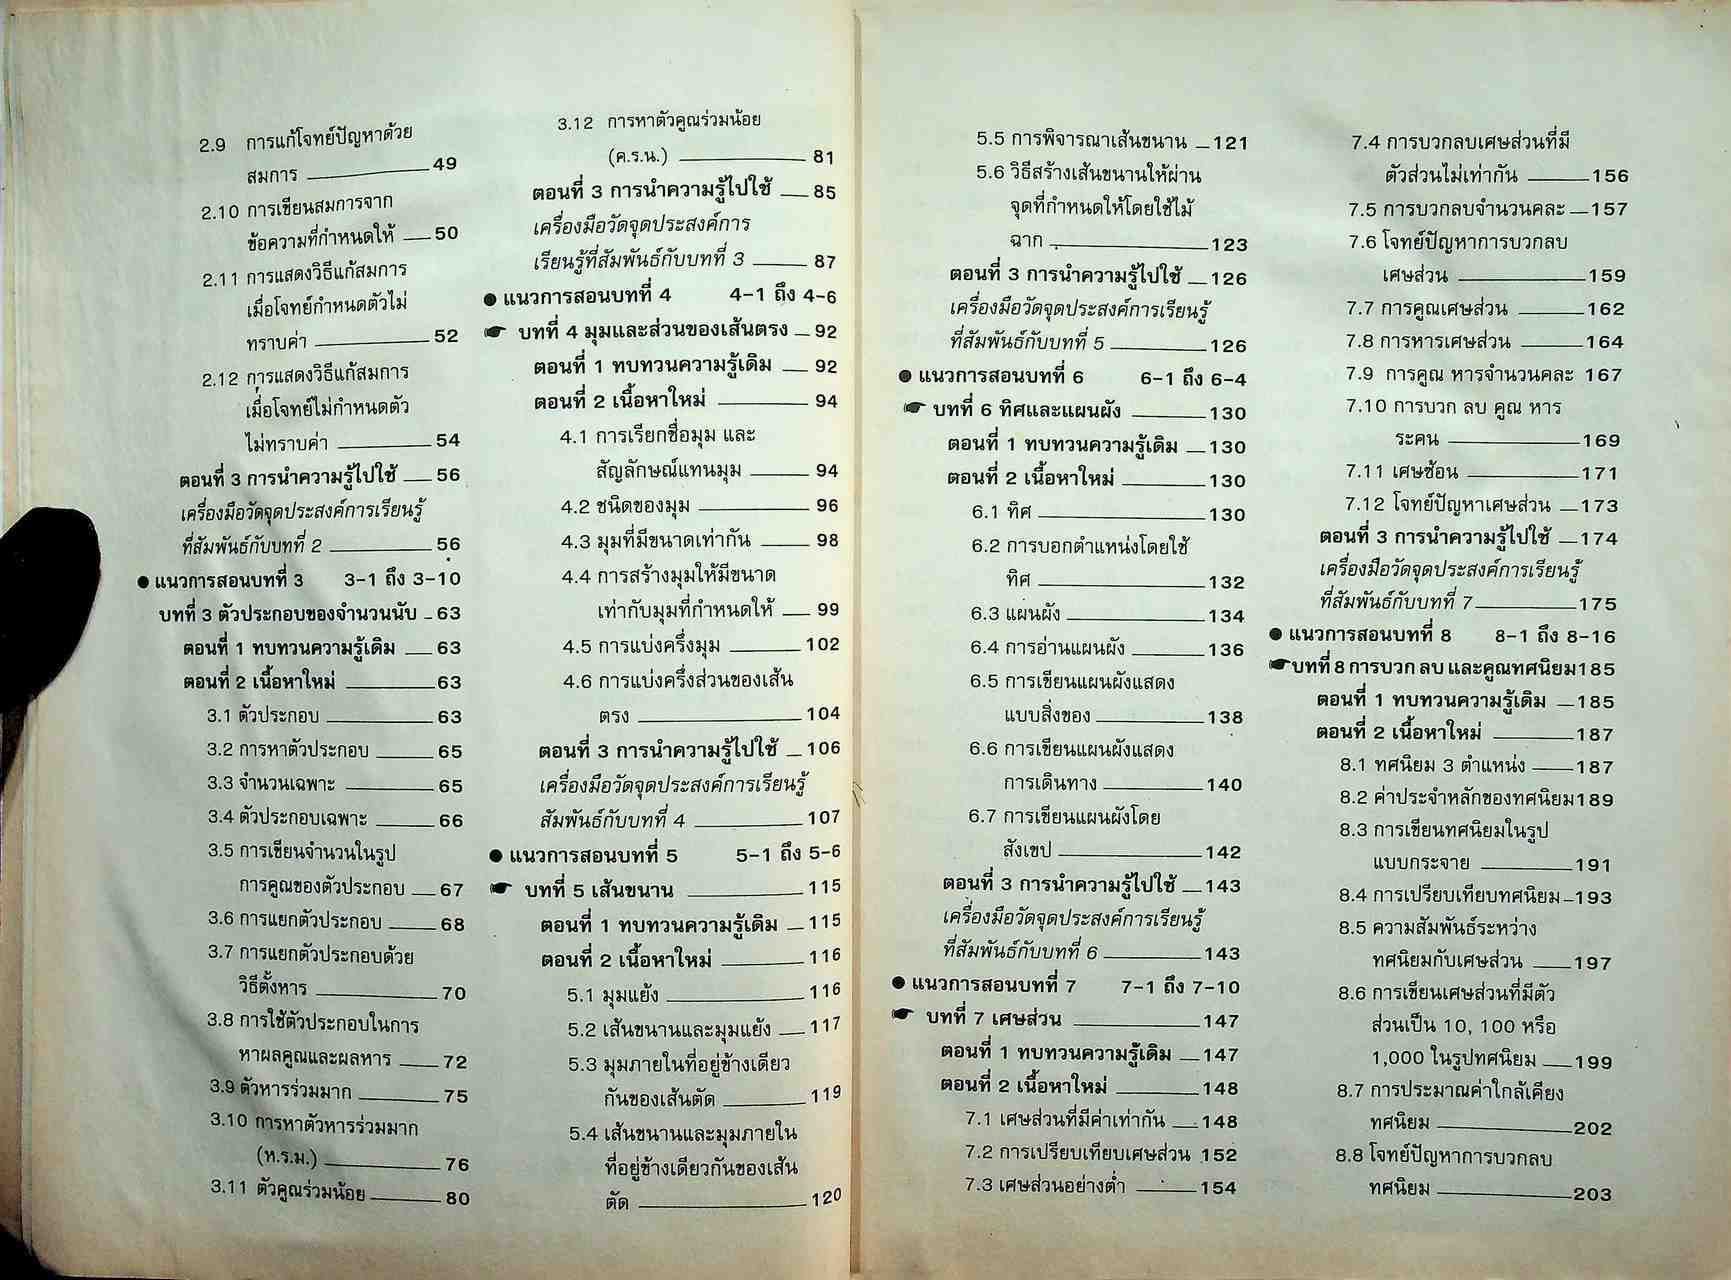 2.9 การแก้โจทย์ปัญหาด้วย
สมการ 49
2.10 การเขียนสมการจาก
ข้อความที่กำหนดให้ 50
2.11 การแสดงวิธีแก้สมการ
เมื่อโจทย์กำหนดตัวไม่
ทราบค่า 52
2.12 การแสดงวิธีแก้สมการ
เมื่อโจทย์ไม่กำหนดตัว
ไม่ทราบค่า 54
ตอนที่ 3 การนำความรู้ไปใช้ 56
เครื่องมือวัดจุดประสงค์การเรียนรู้
ที่สัมพันธ์กับบทที่ 2 56
● แนวการสอนบทที่ 3 3-1 ถึง 3-10
บทที่ 3 ตัวประกอบของจำนวนนับ 63
ตอนที่ 1 ทบทวนความรู้เดิม 63
ตอนที่ 2 เนื้อหาใหม่ 63
3.1 ตัวประกอบ 63
3.2 การหาตัวประกอบ 65
3.3 จำนวนเฉพาะ 65
3.4 ตัวประกอบเฉพาะ 66
3.5 การเขียนจำนวนในรูป
การคูณของตัวประกอบ 67
3.6 การแยกตัวประกอบ 68
3.7 การแยกตัวประกอบด้วย
วิธีตั้งหาร 70
3.8 การใช้ตัวประกอบในการ
หาผลคูณและผลหาร 72
3.9 ตัวหารร่วมมาก 75
3.10 การหาตัวหารร่วมมาก
(ห.ร.ม.) 76
3.11 ตัวคูณร่วมน้อย 80
3.12 การหาตัวคูณร่วมน้อย
(ค.ร.น.) 81
ตอนที่ 3 การนำความรู้ไปใช้ 85
เครื่องมือวัดจุดประสงค์การ
เรียนรู้ที่สัมพันธ์กับบทที่ 3 87
● แนวการสอนบทที่ 4 4-1 ถึง 4-6
บทที่ 4 มุมและส่วนของเส้นตรง 92
ตอนที่ 1 ทบทวนความรู้เดิม 92
ตอนที่ 2 เนื้อหาใหม่ 94
4.1 การเรียกชื่อมุม และ
สัญลักษณ์แทนมุม 94
4.2 ชนิดของมุม 96
4.3 มุมที่มีขนาดเท่ากัน 98
4.4 การสร้างมุมให้มีขนาด
เท่ากับมุมที่กำหนดให้ 99
4.5 การแบ่งครึ่งมุม 102
4.6 การแบ่งครึ่งส่วนของเส้น
ตรง 104
ตอนที่ 3 การนำความรู้ไปใช้ 106
เครื่องมือวัดจุดประสงค์การเรียนรู้
สัมพันธ์กับบทที่ 4 107
● แนวการสอนบทที่ 5 5-1 ถึง 5-6
บทที่ 5 เส้นขนาน 115
ตอนที่ 1 ทบทวนความรู้เดิม 115
ตอนที่ 2 เนื้อหาใหม่ 116
5.1 มุมแย้ง 116
5.2 เส้นขนานและมุมแย้ง 117
5.3 มุมภายในที่อยู่ข้างเดียว
กันของเส้นตัด 119
5.4 เส้นขนานและมุมภายใน
ที่อยู่ข้างเดียวกันของเส้น
ตัด 120
5.5 การพิจารณาเส้นขนาน 121
5.6 วิธีสร้างเส้นขนานให้ผ่าน
จุดที่กำหนดให้โดยใช้ไม้
ฉาก 123
ตอนที่ 3 การนำความรู้ไปใช้ 126
เครื่องมือวัดจุดประสงค์การเรียนรู้
ที่สัมพันธ์กับบทที่ 5 126
● แนวการสอนบทที่ 6 6-1 ถึง 6-4
บทที่ 6 ทิศและแผนผัง 130
ตอนที่ 1 ทบทวนความรู้เดิม 130
ตอนที่ 2 เนื้อหาใหม่ 130
6.1 ทิศ 130
6.2 การบอกตำแหน่งโดยใช้
ทิศ 132
6.3 แผนผัง 134
6.4 การอ่านแผนผัง 136
6.5 การเขียนแผนผังแสดง
แบบสิ่งของ 138
6.6 การเขียนแผนผังแสดง
การเดินทาง 140
6.7 การเขียนแผนผังโดย
สังเขป 142
ตอนที่ 3 การนำความรู้ไปใช้ 143
เครื่องมือวัดจุดประสงค์การเรียนรู้
ที่สัมพันธ์กับบทที่ 6 143
● แนวการสอนบทที่ 7 7-1 ถึง 7-10
บทที่ 7 เศษส่วน 147
ตอนที่ 1 ทบทวนความรู้เดิม 147
ตอนที่ 2 เนื้อหาใหม่ 148
7.1 เศษส่วนที่มีค่าเท่ากัน 148
7.2 การเปรียบเทียบเศษส่วน 152
7.3 เศษส่วนอย่างต่ำ 154
7.4 การบวกลบเศษส่วนที่มี
ตัวส่วนไม่เท่ากัน 156
7.5 การบวกลบจำนวนคละ 157
7.6 โจทย์ปัญหาการบวกลบ
เศษส่วน 159
7.7 การคูณเศษส่วน 162
7.8 การหารเศษส่วน 164
7.9 การคูณ หารจำนวนคละ 167
7.10 การบวก ลบ คูณ หาร
ระคน 169
7.11 เศษซ้อน 171
7.12 โจทย์ปัญหาเศษส่วน 173
ตอนที่ 3 การนำความรู้ไปใช้ 174
เครื่องมือวัดจุดประสงค์การเรียนรู้
ที่สัมพันธ์กับบทที่ 7 175
● แนวการสอนบทที่ 8 8-1 ถึง 8-16
บทที่ 8 การบวก ลบ และคูณทศนิยม 185
ตอนที่ 1 ทบทวนความรู้เดิม 185
ตอนที่ 2 เนื้อหาใหม่ 187
8.1 ทศนิยม 3 ตำแหน่ง 187
8.2 ค่าประจำหลักของทศนิยม 189
8.3 การเขียนทศนิยมในรูป
แบบกระจาย 191
8.4 การเปรียบเทียบทศนิยม 193
8.5 ความสัมพันธ์ระหว่าง
ทศนิยมกับเศษส่วน 197
8.6 การเขียนเศษส่วนที่มีตัว
ส่วนเป็น 10, 100 หรือ
1,000 ในรูปทศนิยม 199
8.7 การประมาณค่าใกล้เคียง
ทศนิยม 202
8.8 โจทย์ปัญหาการบวกลบ
ทศนิยม 203